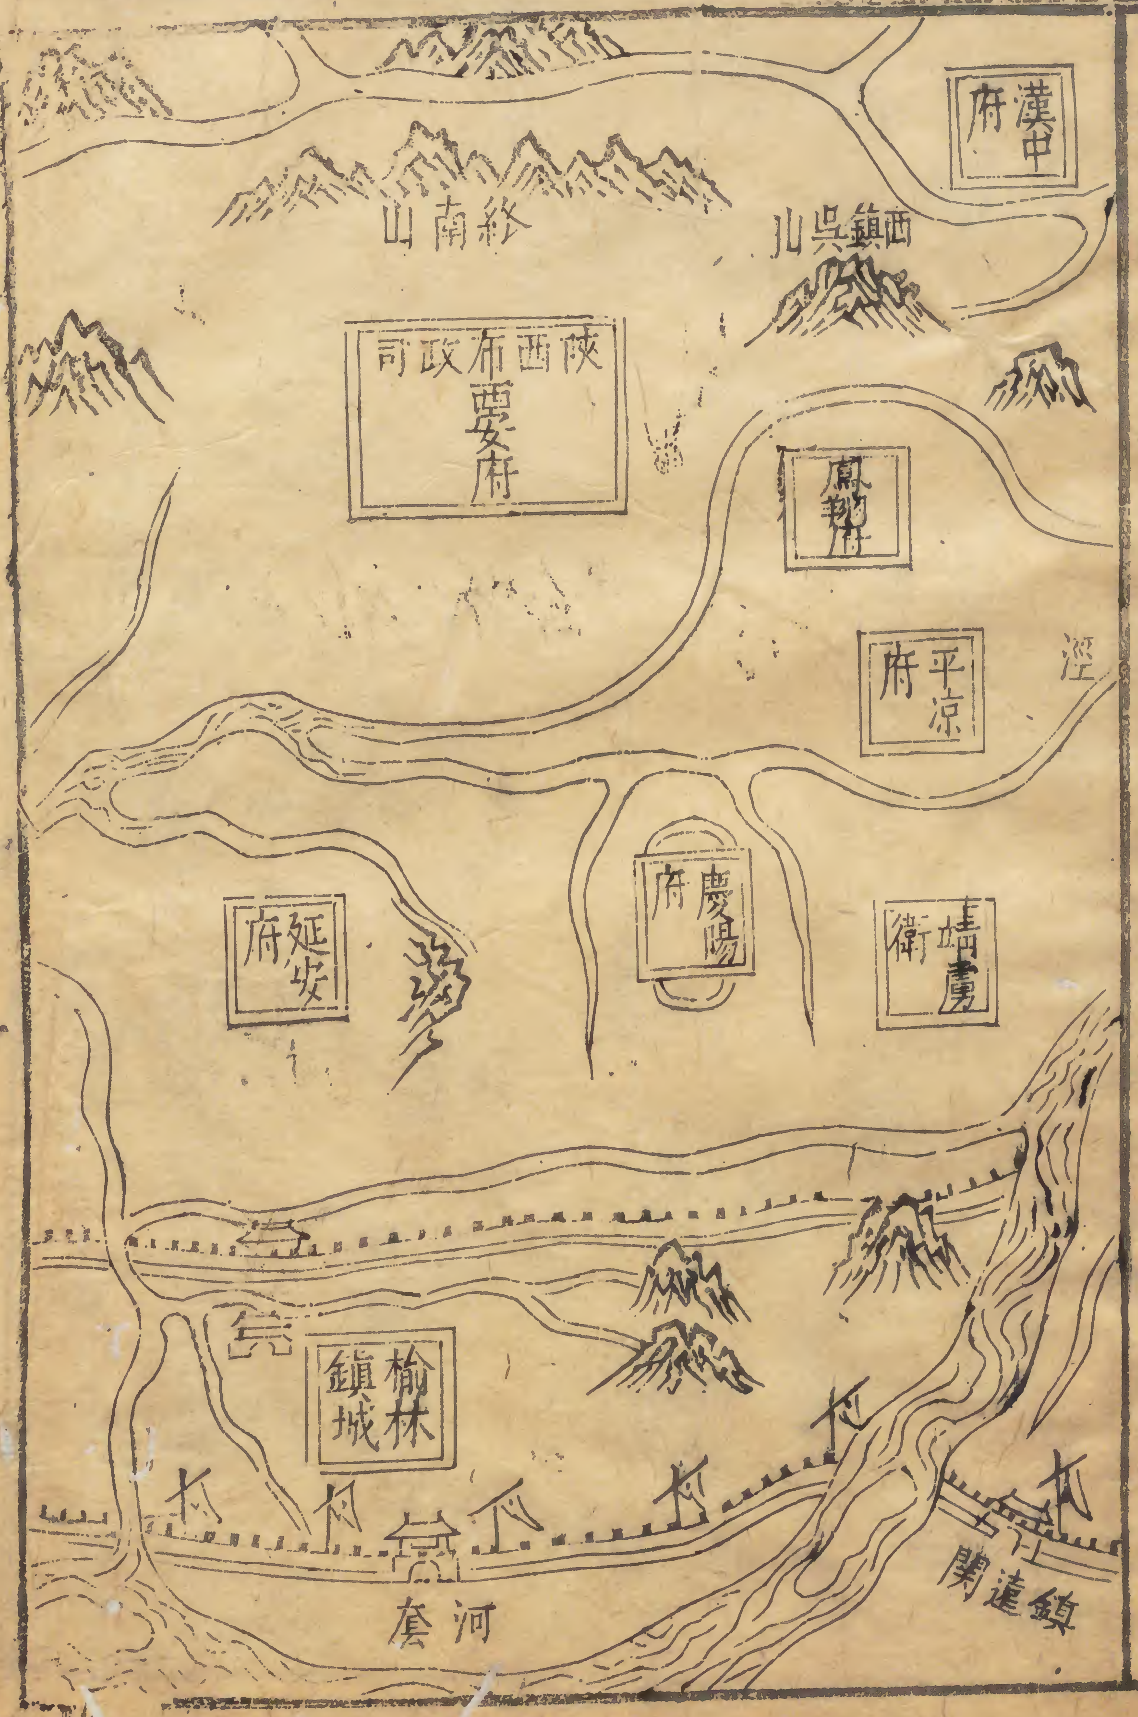 漢中
府
終南山
西鎮吳山
陝西布政司
西安府
鳳翔府
平凉
府
涇
慶陽
府
靖虜
衛
延安
府
榆林
鎮城
鎮遠關
河套